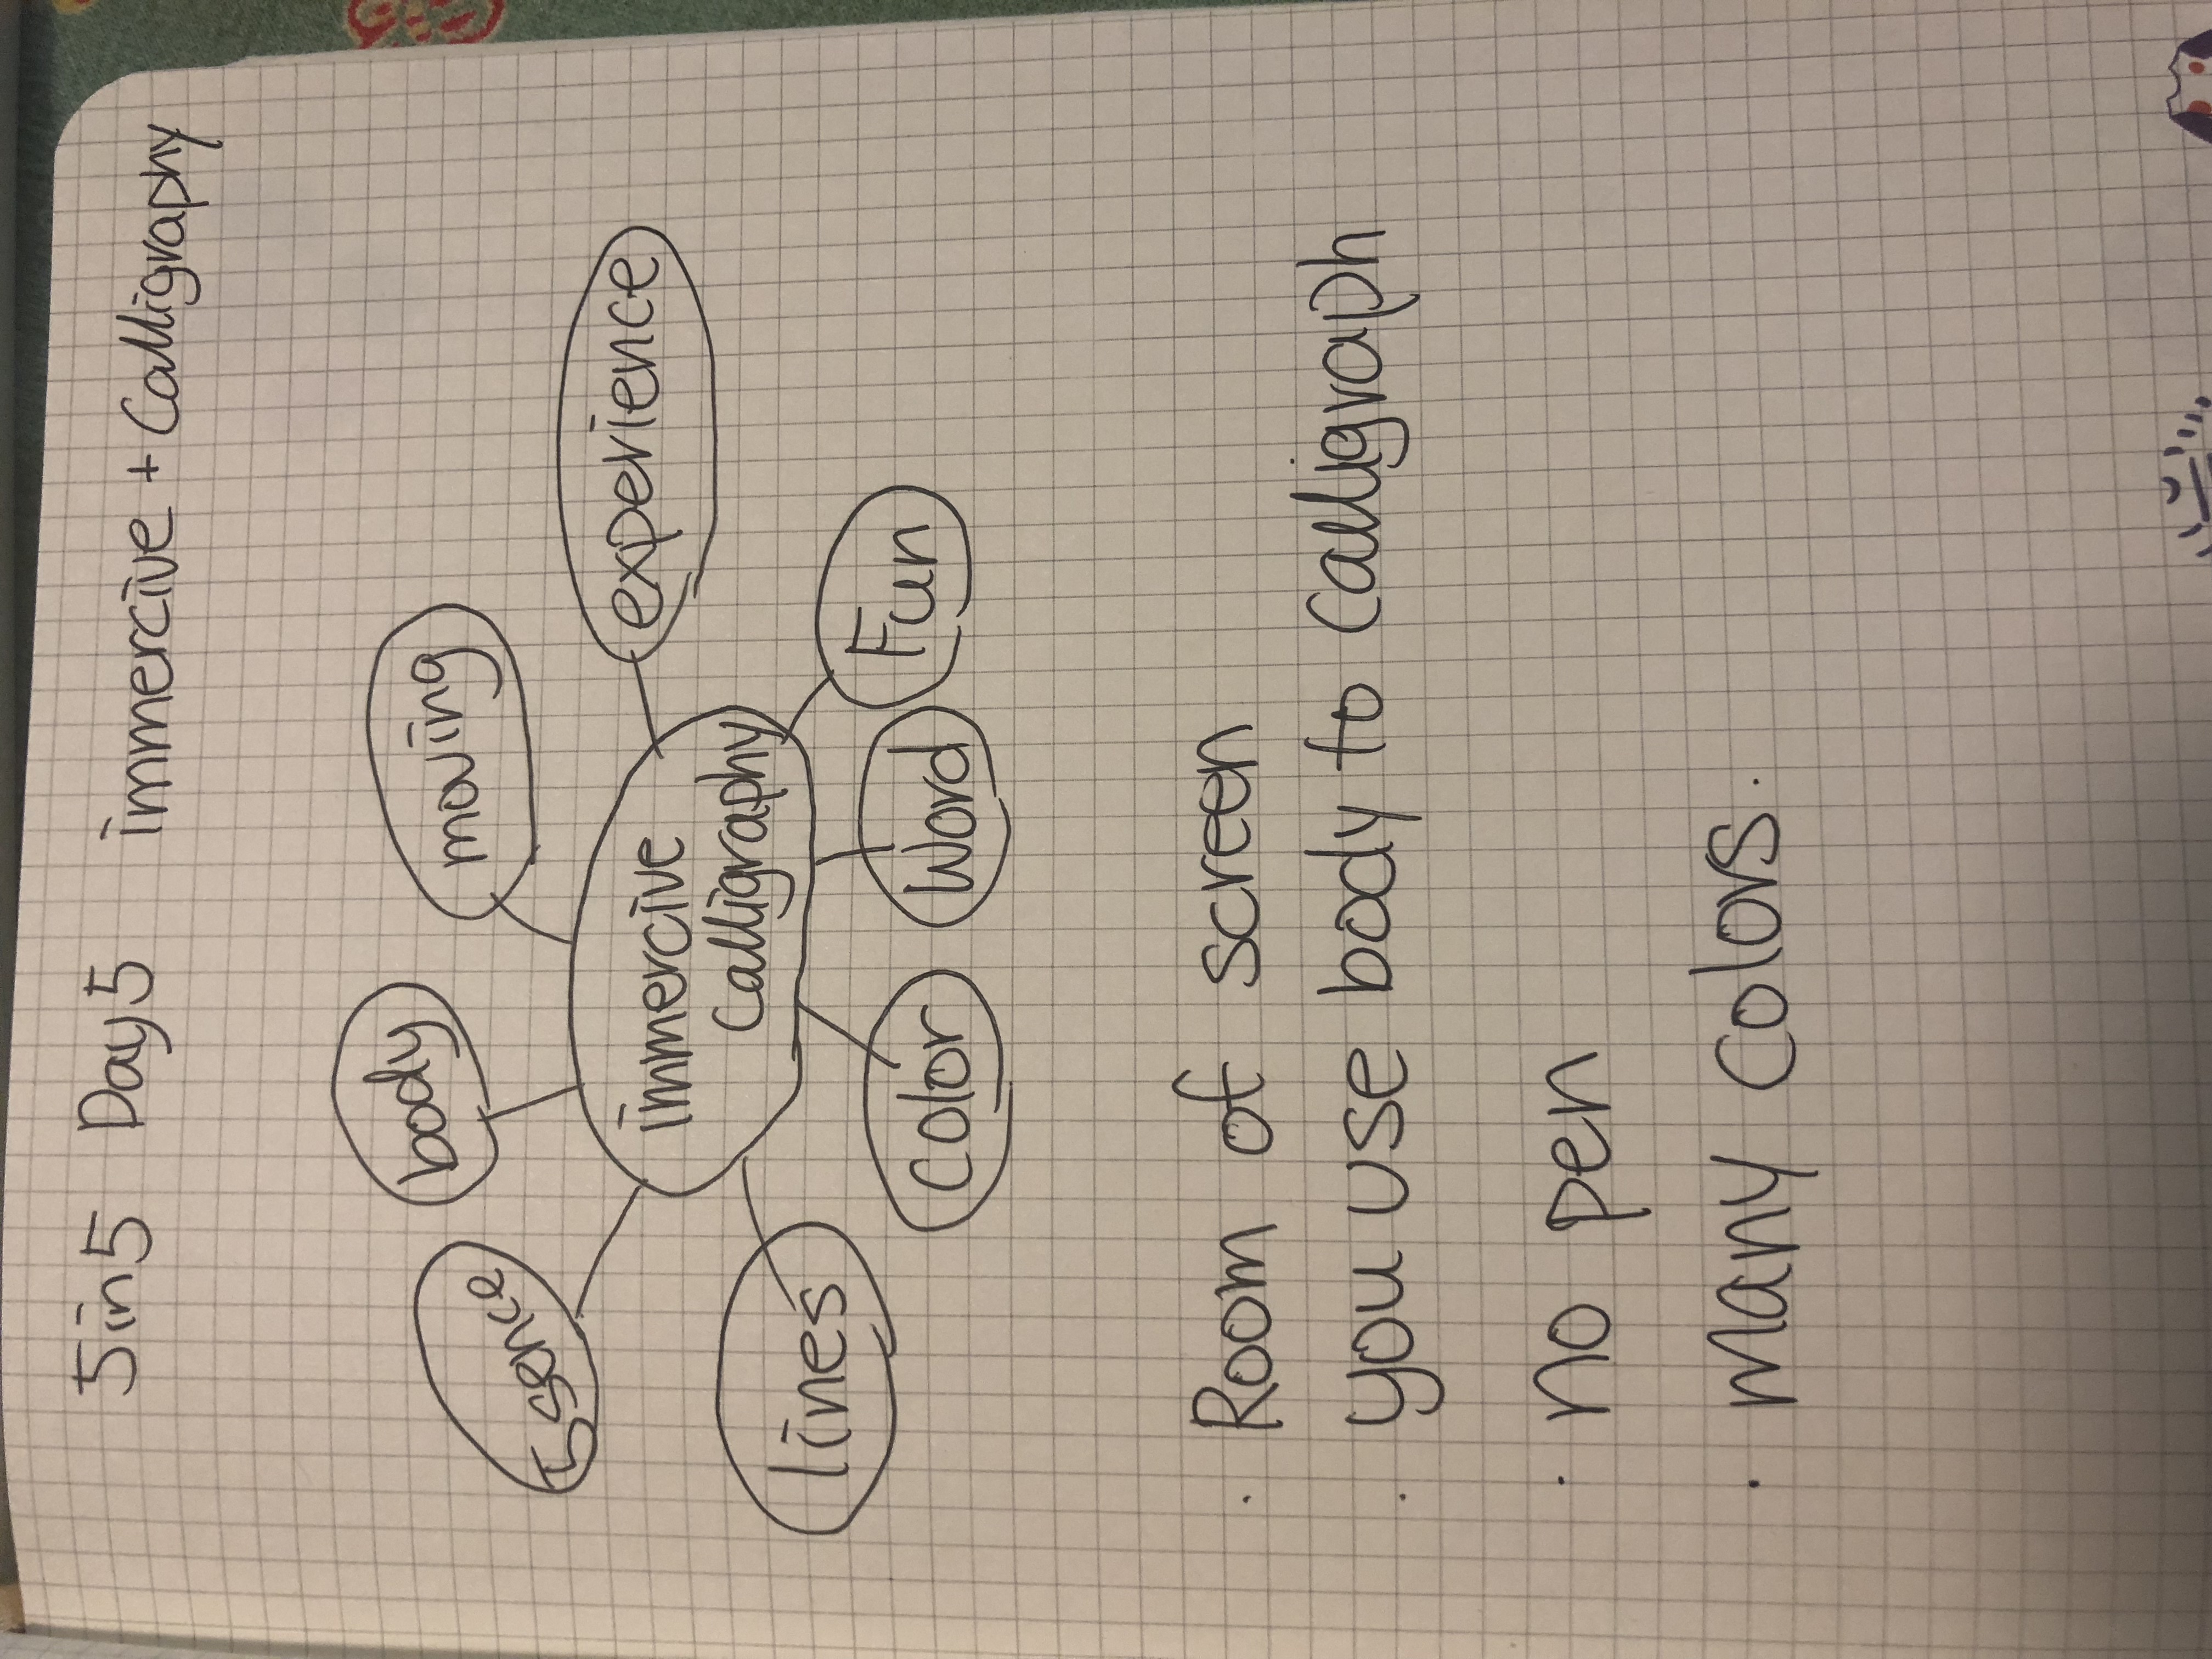 5in5 Day5 immercive + Calligraphy
body
moving
5 sence
experience
immercive
Calligraphy
lines
Color
Word
Fun
· Room of screen
· you use body to Calligraph
· no pen
· many colors.